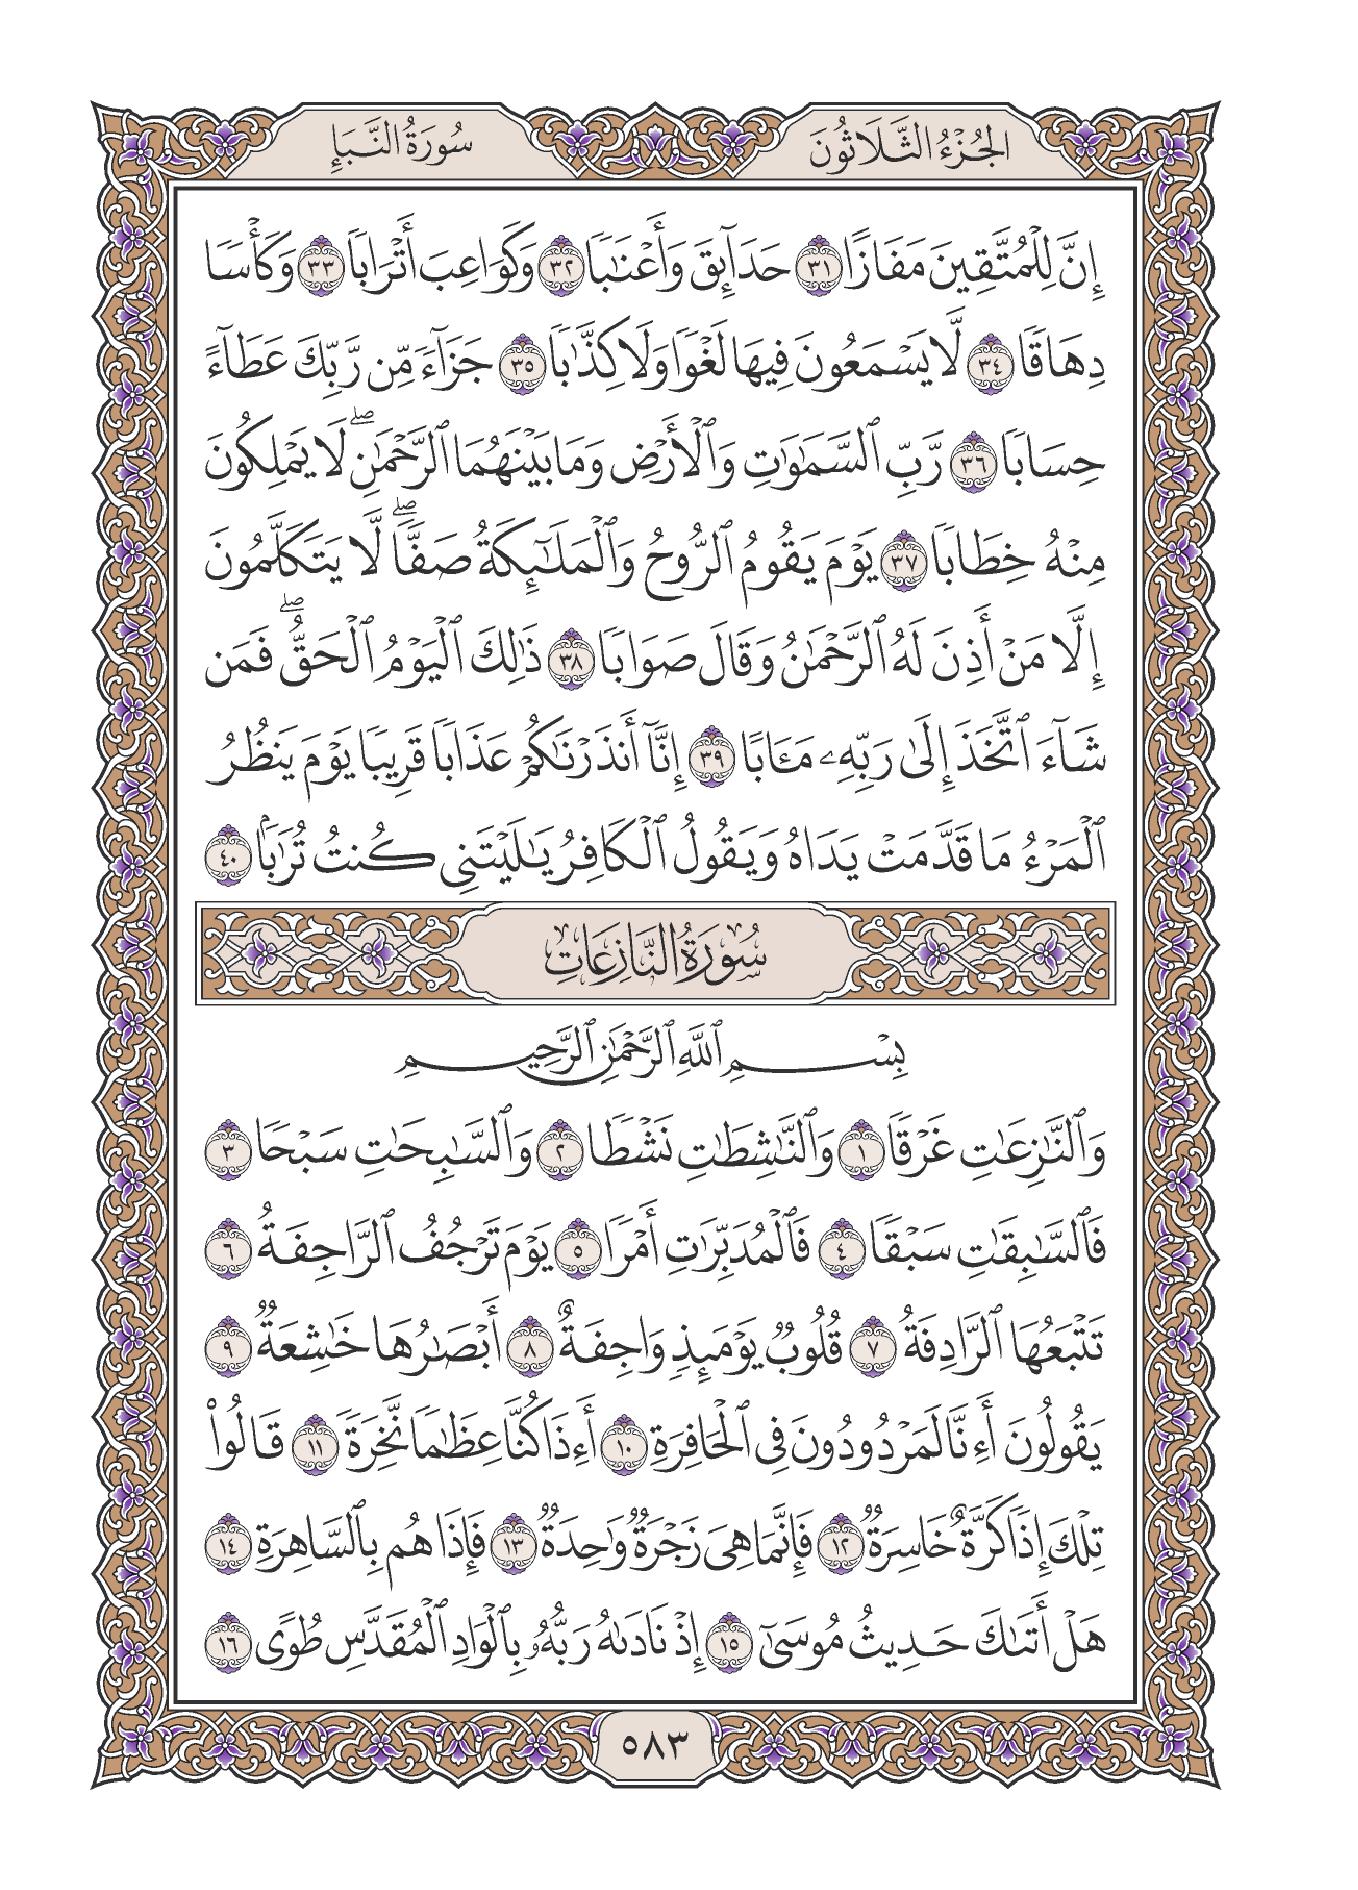 الجُزْءُ الثَّلَاثُونَ
سُورَةُ النَّبَإِ
إِنَّ لِلْمُتَّقِينَ مَفَازًا ٣١ حَدَآئِقَ وَأَعْنَٰبٗا ٣٢ وَكَوَاعِبَ أَتۡرَابٗا ٣٣ وَكَأۡسٗا
دِهَاقٗا ٣٤ لَّا يَسۡمَعُونَ فِيهَا لَغۡوٗا وَلَا كِذَّٰبٗا ٣٥ جَزَآءٗ مِّن رَّبِّكَ عَطَآءً
حِسَابٗا ٣٦ رَّبِّ ٱلسَّمَٰوَٰتِ وَٱلۡأَرۡضِ وَمَا بَيۡنَهُمَا ٱلرَّحۡمَٰنِۖ لَا يَمۡلِكُونَ
مِنۡهُ خِطَابٗا ٣٧ يَوۡمَ يَقُومُ ٱلرُّوحُ وَٱلۡمَلَٰٓئِكَةُ صَفّٗاۖ لَّا يَتَكَلَّمُونَ
إِلَّا مَنۡ أَذِنَ لَهُ ٱلرَّحۡمَٰنُ وَقَالَ صَوَابٗا ٣٨ ذَٰلِكَ ٱلۡيَوۡمُ ٱلۡحَقُّۖ فَمَن
شَآءَ ٱتَّخَذَ إِلَىٰ رَبِّهِۦ مَـَٔابًا ٣٩ إِنَّآ أَنذَرۡنَٰكُمۡ عَذَابٗا قَرِيبٗا يَوۡمَ يَنظُرُ
ٱلۡمَرۡءُ مَا قَدَّمَتۡ يَدَاهُ وَيَقُولُ ٱلۡكَافِرُ يَٰلَيۡتَنِي كُنتُ تُرَٰبَۢا ٤٠
سُورَةُ النَّازِعَاتِ
بِسۡمِ ٱللَّهِ ٱلرَّحۡمَٰنِ ٱلرَّحِيمِ
وَٱلنَّٰزِعَٰتِ غَرۡقٗا ١ وَٱلنَّٰشِطَٰتِ نَشۡطٗا ٢ وَٱلسَّٰبِحَٰتِ سَبۡحٗا ٣
فَٱلسَّٰبِقَٰتِ سَبۡقٗا ٤ فَٱلۡمُدَبِّرَٰتِ أَمۡرٗا ٥ يَوۡمَ تَرۡجُفُ ٱلرَّاجِفَةُ ٦
تَتۡبَعُهَا ٱلرَّادِفَةُ ٧ قُلُوبٞ يَوۡمَئِذٖ وَاجِفَةٌ ٨ أَبۡصَٰرُهَا خَٰشِعَةٞ ٩
يَقُولُونَ أَءِنَّا لَمَرۡدُودُونَ فِي ٱلۡحَافِرَةِ ١٠ أَءِذَا كُنَّا عِظَٰمٗا نَّخِرَةٗ ١١ قَالُواْ
تِلۡكَ إِذٗا كَرَّةٌ خَاسِرَةٞ ١٢ فَإِنَّمَا هِيَ زَجۡرَةٞ وَٰحِدَةٞ ١٣ فَإِذَا هُم بِٱلسَّاهِرَةِ ١٤
هَلۡ أَتَىٰكَ حَدِيثُ مُوسَىٰٓ ١٥ إِذۡ نَادَىٰهُ رَبُّهُۥ بِٱلۡوَادِ ٱلۡمُقَدَّسِ طُوًى ١٦
٥٨٣